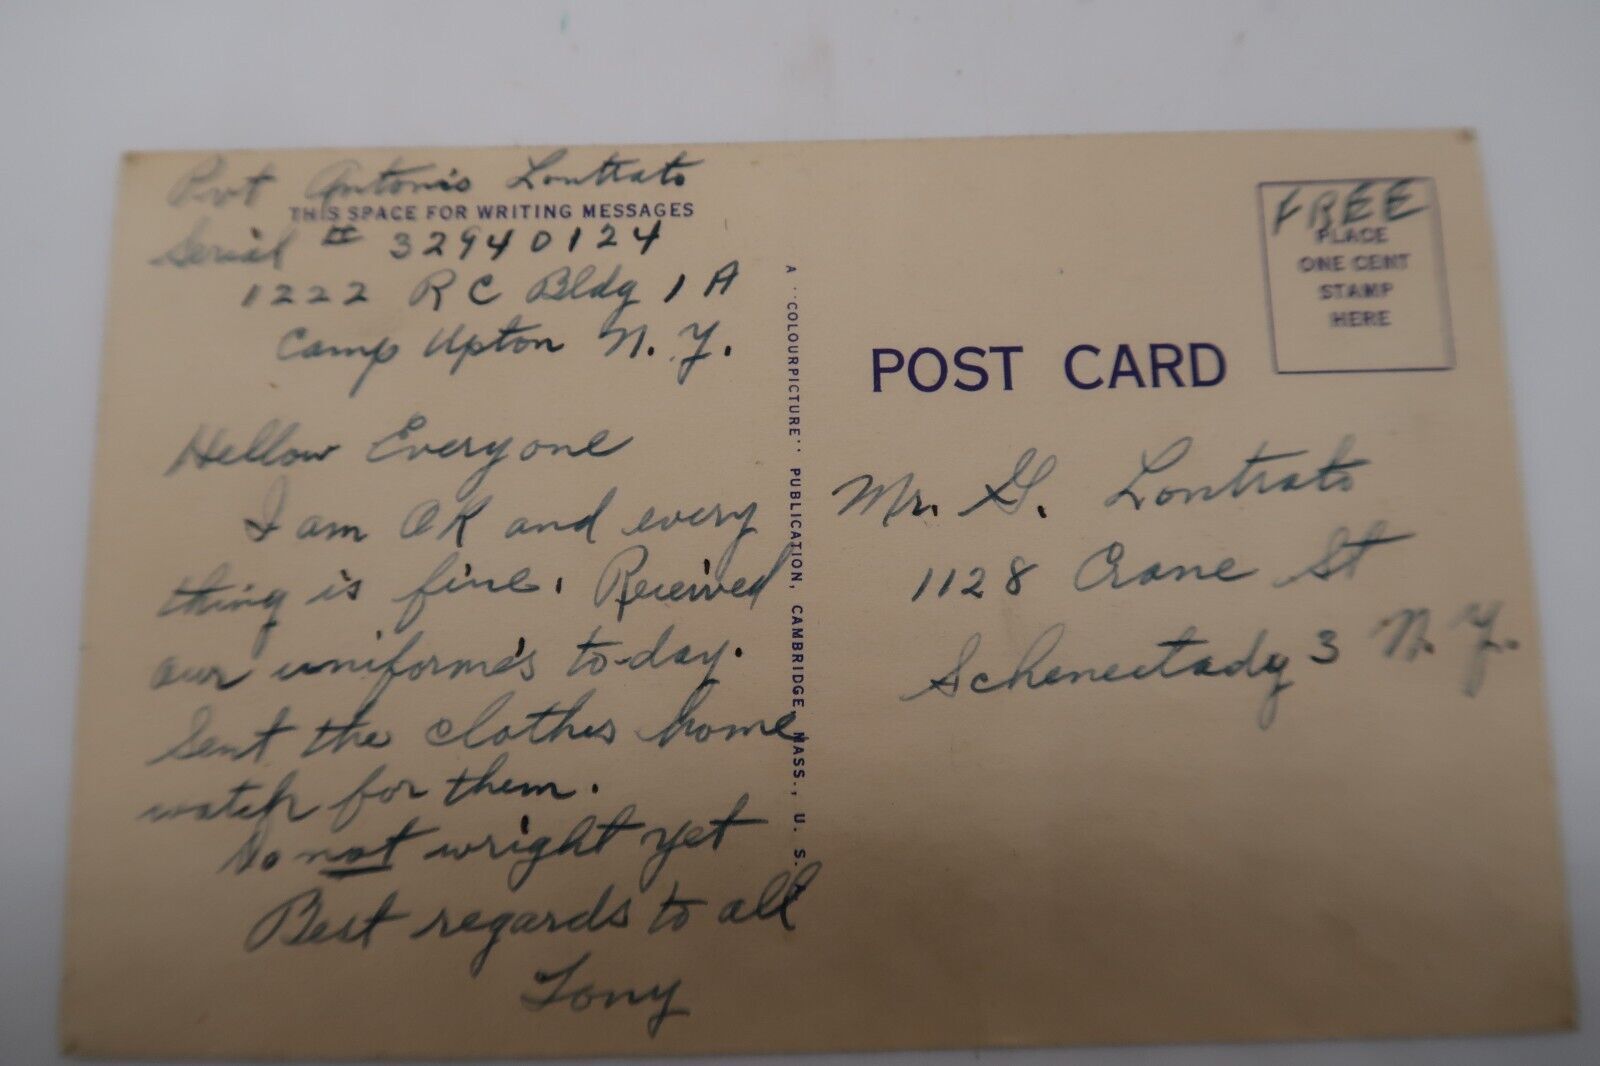 Pvt Antonio Lontrato
THIS SPACE FOR WRITING MESSAGES
Serial # 32940124
1222 R C Bldg 1 A
Camp Upton N. Y.
Hellow Everyone
I am OK and every
thing is fine. Received
our uniforme's to-day.
Sent the clothes home
watch for them.
Do not wright yet
Best regards to all
Tony
A "COLOURPICTURE" PUBLICATION, CAMBRIDGE, MASS., U. S. A.
FREE
PLACE
ONE CENT
STAMP
HERE
POST CARD
Mr. G. Lontrato
1128 Crane St
Schenectady 3 N. Y.